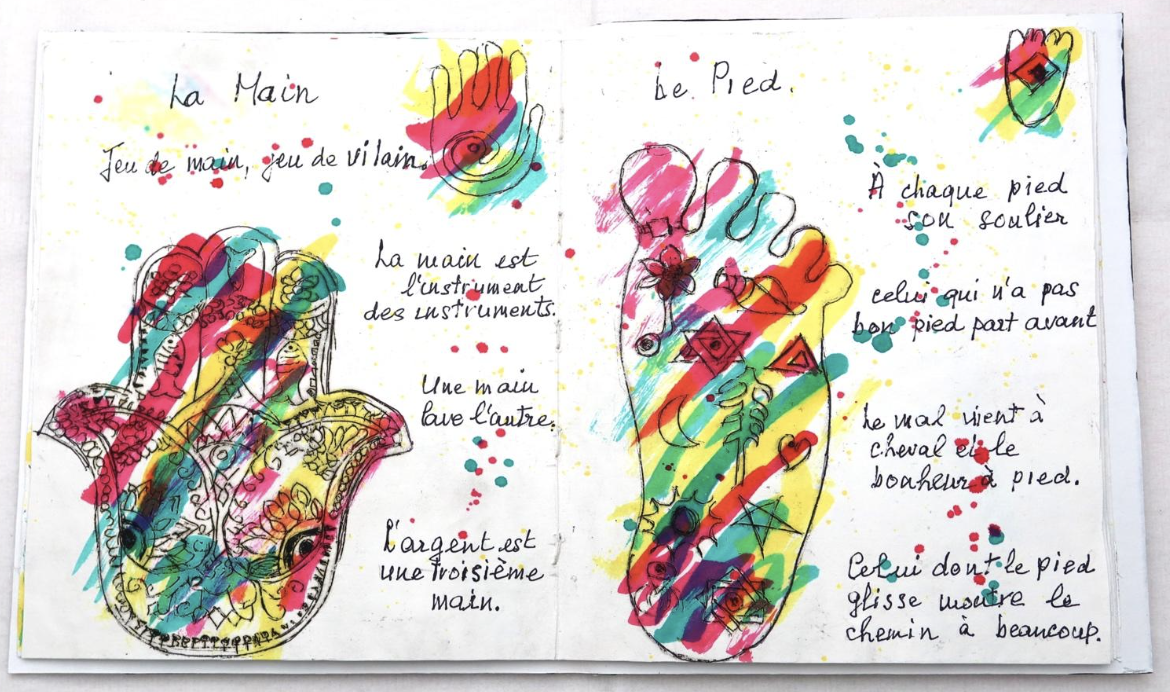 La Main
Jeu de main, jeu de vilain.
La main est
l'instrument
des instruments.
Une main
lave l'autre.
L'argent est
une troisième
main.
Le Pied.
À chaque pied
son soulier
celui qui n'a pas
bon pied part avant
Le mal vient à
cheval et le
bonheur à pied.
Celui dont le pied
glisse montre le
chemin à beaucoup.